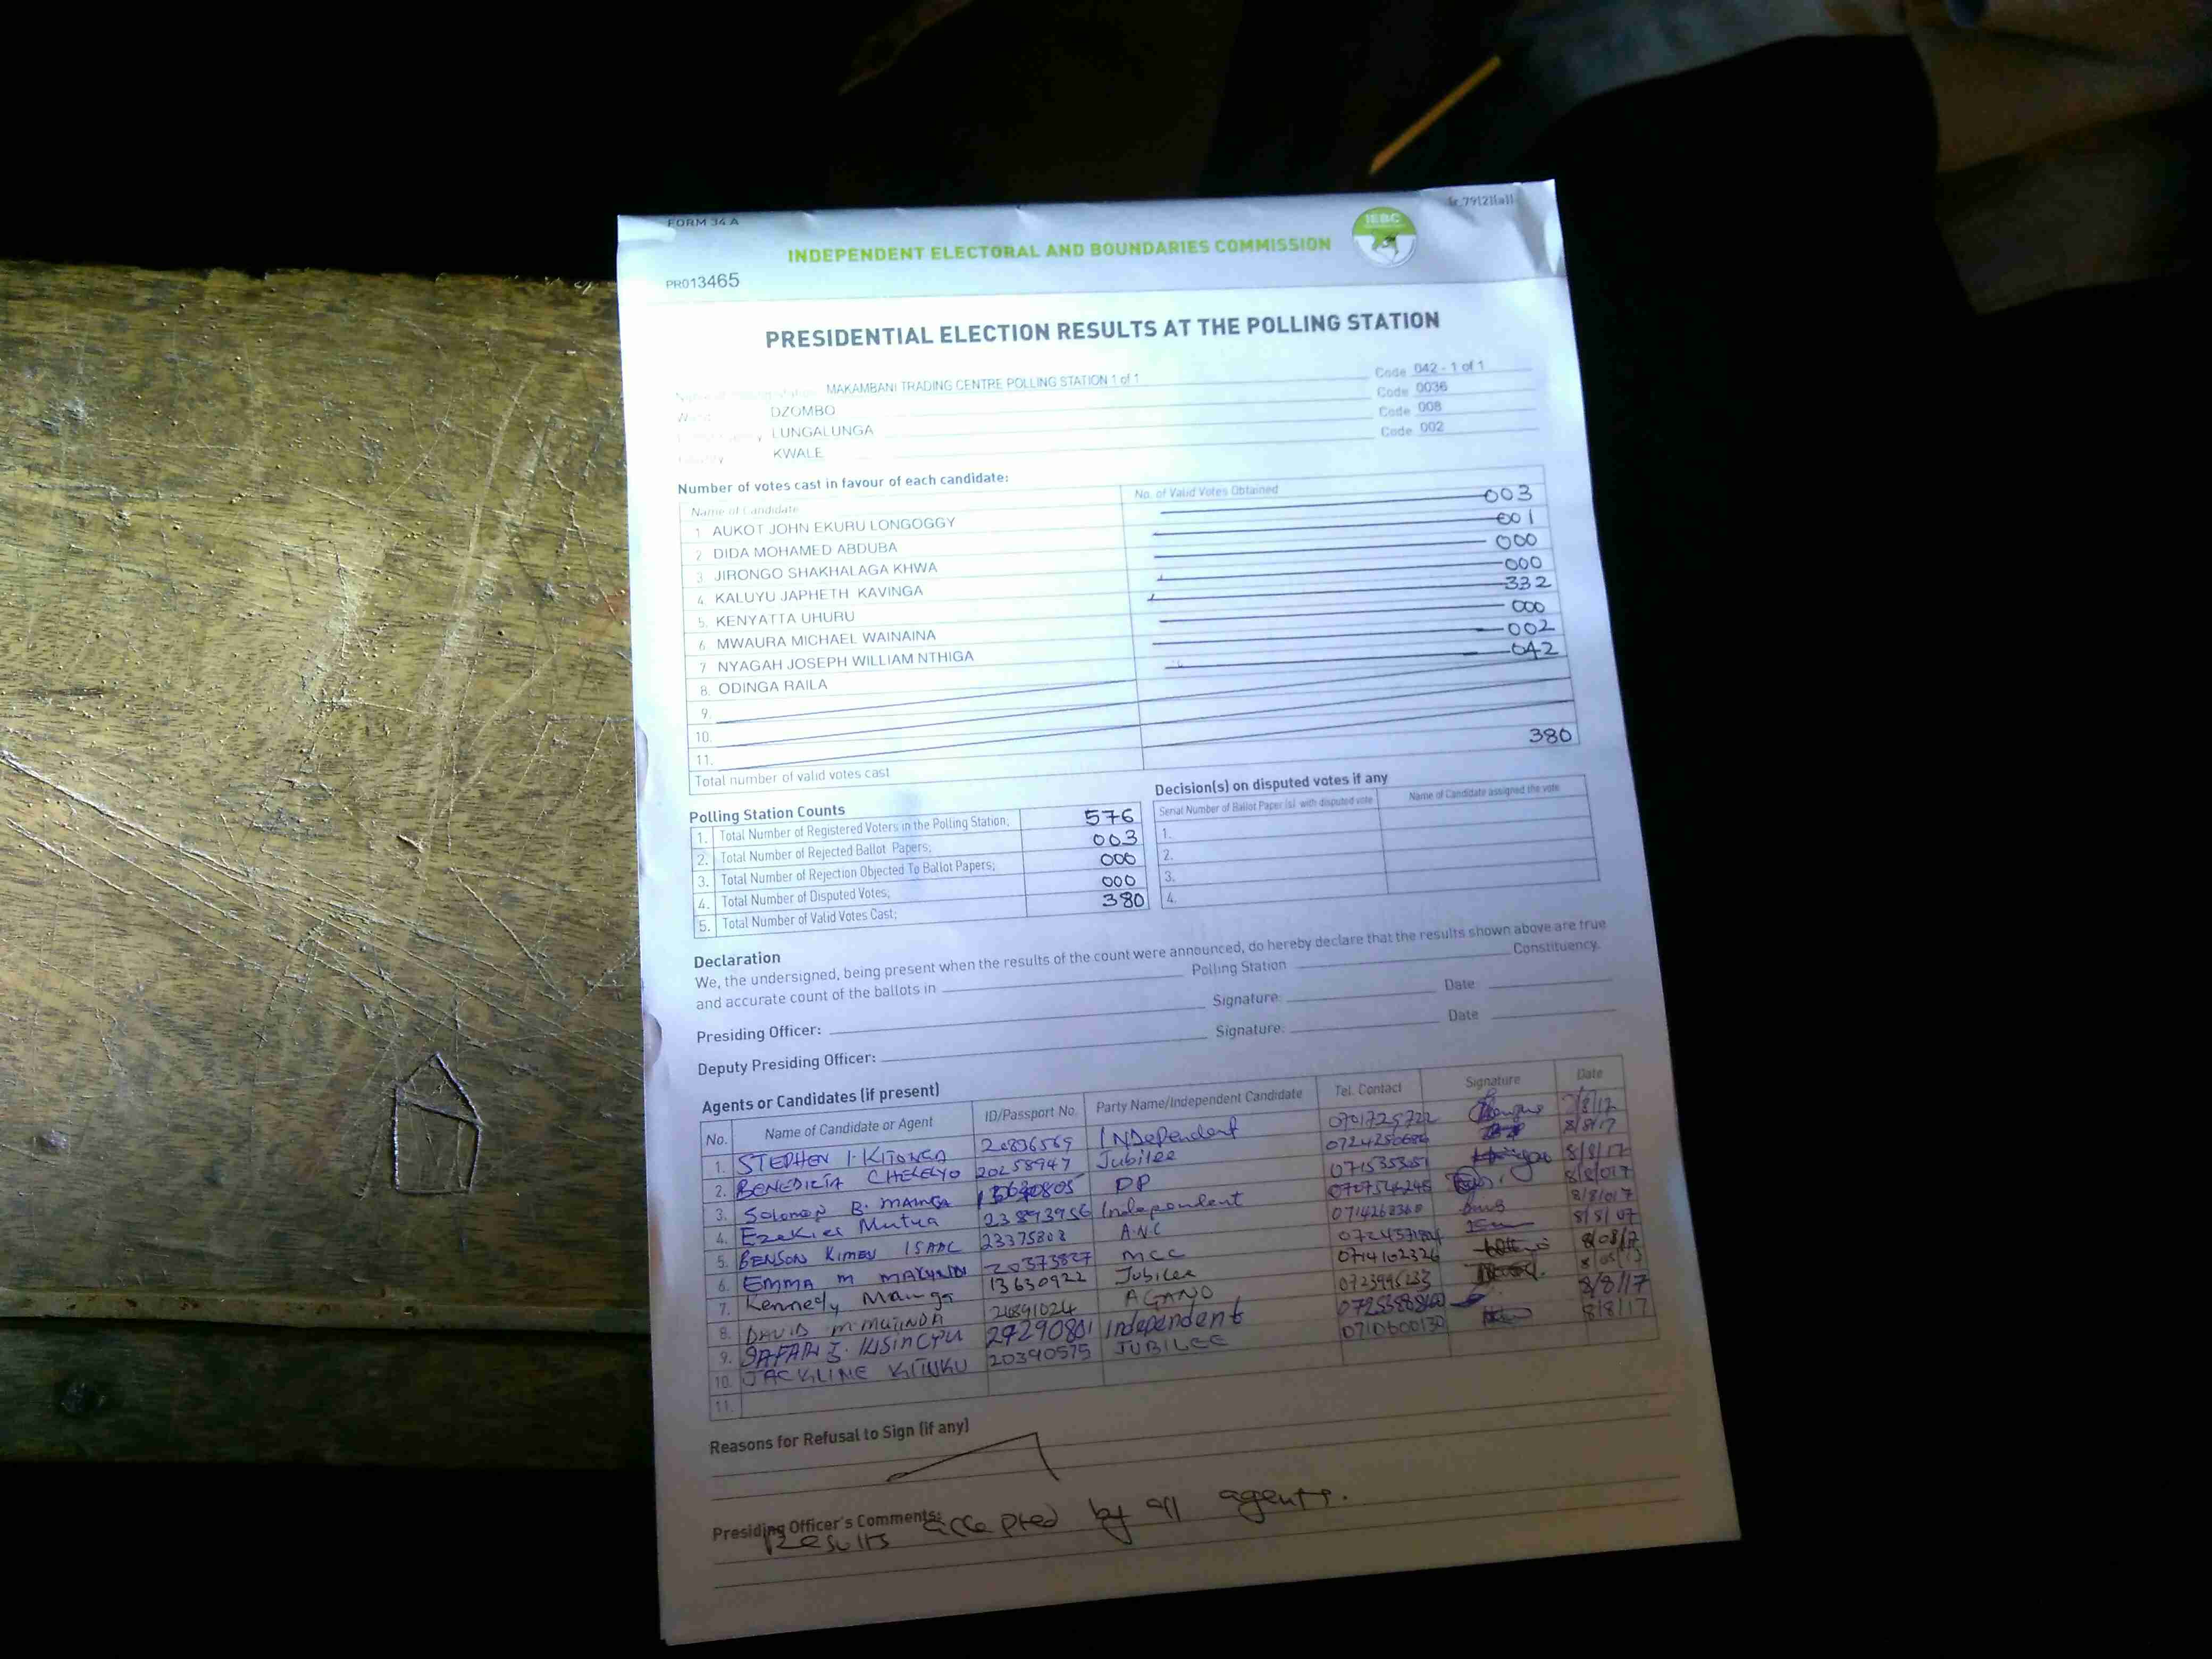 FORM 34 A
(r.79(2)(a))
IEBC
INDEPENDENT ELECTORAL AND BOUNDARIES COMMISSION
PR013465
PRESIDENTIAL ELECTION RESULTS AT THE POLLING STATION
MAKAMBANI TRADING CENTRE POLLING STATION 1 of 1 Code 042 - 1 of 1
Ward DZOMBO Code 0036
LUNGALUNGA Code 008
County KWALE Code 002
Number of votes cast in favour of each candidate:
Name of Candidate No. of Valid Votes Obtained
1 AUKOT JOHN EKURU LONGOGGY 003
2 DIDA MOHAMED ABDUBA 001
3 JIRONGO SHAKHALAGA KHWA 000
4. KALUYU JAPHETH KAVINGA 000
5. KENYATTA UHURU 332
6 MWAURA MICHAEL WAINAINA 000
7 NYAGAH JOSEPH WILLIAM NTHIGA 002
8. ODINGA RAILA 042
9.
10.
11.
Total number of valid votes cast 380
Polling Station Counts
1. Total Number of Registered Voters in the Polling Station, 576
2. Total Number of Rejected Ballot Papers; 003
3. Total Number of Rejection Objected To Ballot Papers; 000
4. Total Number of Disputed Votes; 000
5. Total Number of Valid Votes Cast; 380
Decision(s) on disputed votes if any
Serial Number of Ballot Paper (s) with disputed vote Name of Candidate assigned the vote
1.
2.
3.
4.
Declaration
We, the undersigned, being present when the results of the count were announced, do hereby declare that the results shown above are true
and accurate count of the ballots in Polling Station Constituency.
Presiding Officer: Signature: Date
Deputy Presiding Officer: Signature: Date
Agents or Candidates (if present)
No. Name of Candidate or Agent ID/Passport No. Party Name/Independent Candidate Tel. Contact Signature Date
1. STEPHEN 20836569 INDependent 0701725722 8/17
2. BENEDICTA 20258947 Jubilee 8/8/17
3. Solomon B. DP 8/8/17
4. Ezekiel Mutua 23893956 Independent 8/8/017
5. BENSON ISAAC 23375803 A.N.C 8/8/017
6. EMMA M 20373827 MCC 8/8/07
7. Kennedy Mainga 13630922 Jubilee 0714102326 8/08/17
8. DAVID M. 24891024 AGANO
9. SAFARI 27290801 Independent 8/8/17
10. JACKLINE 20390575 JUBILEE 0710600130 8/8/17
11.
Reasons for Refusal to Sign (if any)
Presiding Officer's Comments:
Results accepted by all agents.